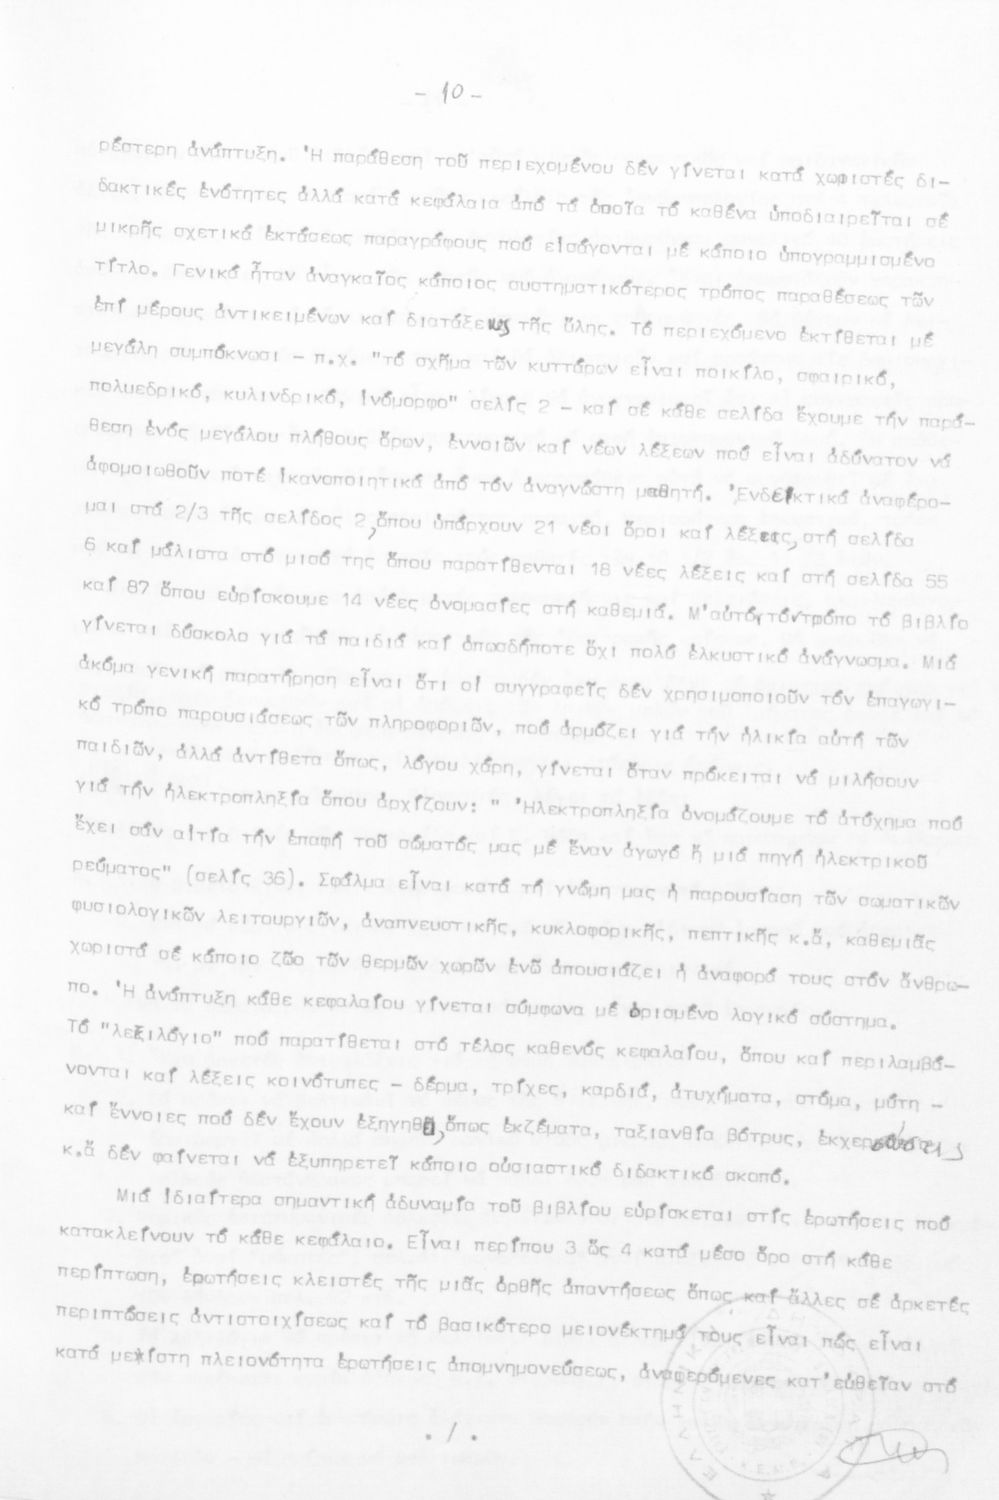 - 10 -
ρέστερη ἀνάπτυξη. Ἡ παράθεση τοῦ περιεχομένου δέν γίνεται κατά χωριστές δι-
δακτικές ἑνότητες ἀλλά κατά κεφάλαια ἀπό τά ὁποῖα τό καθένα ὑποδιαιρεῖται σέ
μικρῆς σχετικά ἐκτάσεως παραγράφους πού εἰσάγονται μέ κάποιο ὑπογραμμισμένο
τίτλο. Γενικά ἦταν ἀναγκαῖος κάποιος συστηματικότερος τρόπος παραθέσεως τῶν
ἐπί μέρους ἀντικειμένων καί διατάξεως τῆς ὕλης. Τό περιεχόμενο ἐκτίθεται μέ
μεγάλη συμπύκνωσι - π.χ. "τό σχῆμα τῶν κυττάρων εἶναι ποικίλο, σφαιρικό,
πολυεδρικό, κυλινδρικό, ἰνόμορφο" σελίς 2 - καί σέ κάθε σελίδα ἔχουμε τήν παρά-
θεση ἑνός μεγάλου πλήθους ὅρων, ἐννοιῶν καί νέων λέξεων πού εἶναι ἀδύνατον νά
ἀφομοιωθοῦν ποτέ ἱκανοποιητικά ἀπό τόν ἀναγνώστη μαθητή. Ἐνδεικτικά ἀναφέρο-
μαι στά 2/3 τῆς σελίδος 2, ὅπου ὑπάρχουν 21 νέοι ὅροι καί λέξεις, στή σελίδα
6 καί μάλιστα στό μισό της ὅπου παρατίθενται 18 νέες λέξεις καί στή σελίδα 55
καί 87 ὅπου εὑρίσκουμε 14 νέες ὀνομασίες στή καθεμιά. Μ'αὐτό τόν τρόπο τό βιβλίο
γίνεται δύσκολο γιά τά παιδιά καί ὁπωσδήποτε ὄχι πολύ ἑλκυστικό ἀνάγνωσμα. Μιά
ἀκόμα γενική παρατήρηση εἶναι ὅτι οἱ συγγραφεῖς δέν χρησιμοποιοῦν τόν ἐπαγωγι-
κό τρόπο παρουσιάσεως τῶν πληροφοριῶν, πού ἁρμόζει γιά τήν ἡλικία αὐτή τῶν
παιδιῶν, ἀλλά ἀντίθετα ὅπως, λόγου χάρη, γίνεται ὅταν πρόκειται νά μιλήσουν
γιά τήν ἠλεκτροπληξία ὅπου ἀρχίζουν: " Ἠλεκτροπληξία ὀνομάζουμε τό ἀτύχημα πού
ἔχει σάν αἰτία τήν ἐπαφή τοῦ σώματός μας μέ ἕναν ἀγωγό ἤ μιά πηγή ἠλεκτρικοῦ
ρεύματος" (σελίς 36). Σφάλμα εἶναι κατά τή γνώμη μας ἡ παρουσίαση τῶν σωματικῶν
φυσιολογικῶν λειτουργιῶν, ἀναπνευστικῆς, κυκλοφορικῆς, πεπτικῆς κ.ἄ, καθεμιᾶς
χωριστά σέ κάποιο ζῶο τῶν θερμῶν χωρῶν ἐνῶ ἀπουσιάζει ἡ ἀναφορά τους στόν ἄνθρω-
πο. Ἡ ἀνάπτυξη κάθε κεφαλαίου γίνεται σύμφωνα μέ ὁρισμένο λογικό σύστημα.
Τό "λεξιλόγιο" πού παρατίθεται στό τέλος καθενός κεφαλαίου, ὅπου καί περιλαμβά-
νονται καί λέξεις κοινότυπες - δέρμα, τρίχες, καρδιά, ἀτυχήματα, στόμα, μύτη -
καί ἔννοιες πού δέν ἔχουν ἐξηγηθῆ, ὅπως ἐκζέματα, ταξιανθία βότρυς, ἐκχερσώσεις,
κ.ἄ δέν φαίνεται νά ἐξυπηρετεῖ κάποιο οὐσιαστικό διδακτικό σκοπό.
Μιά ἰδιαίτερα σημαντική ἀδυναμία τοῦ βιβλίου εὑρίσκεται στίς ἐρωτήσεις πού
κατακλείνουν τό κάθε κεφάλαιο. Εἶναι περίπου 3 ὥς 4 κατά μέσο ὅρο στή κάθε
περίπτωση, ἐρωτήσεις κλειστές τῆς μιᾶς ὀρθῆς ἀπαντήσεως ὅπως καί ἄλλες σέ ἀρκετές
περιπτώσεις ἀντιστοιχίσεως καί τό βασικότερο μειονέκτημά τους εἶναι πώς εἶναι
κατά μεγίστη πλειονότητα ἐρωτήσεις ἀπομνημονεύσεως, ἀναφερόμενες κατ'εὐθεῖαν στό
./.